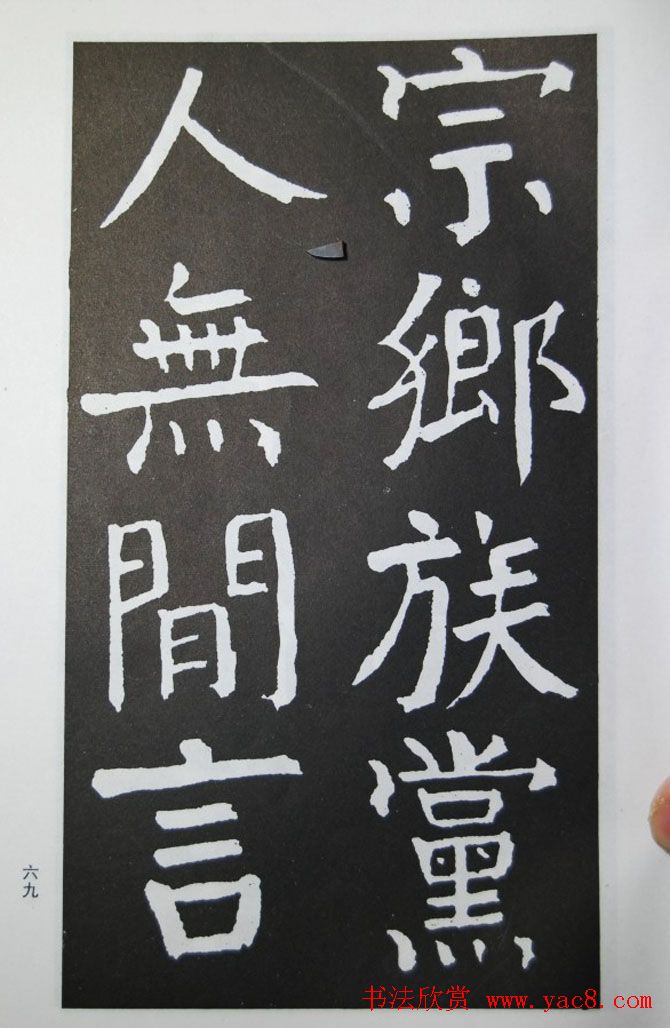 宗鄉族黨
人無間言
六九
书法欣赏 www.yac8.com